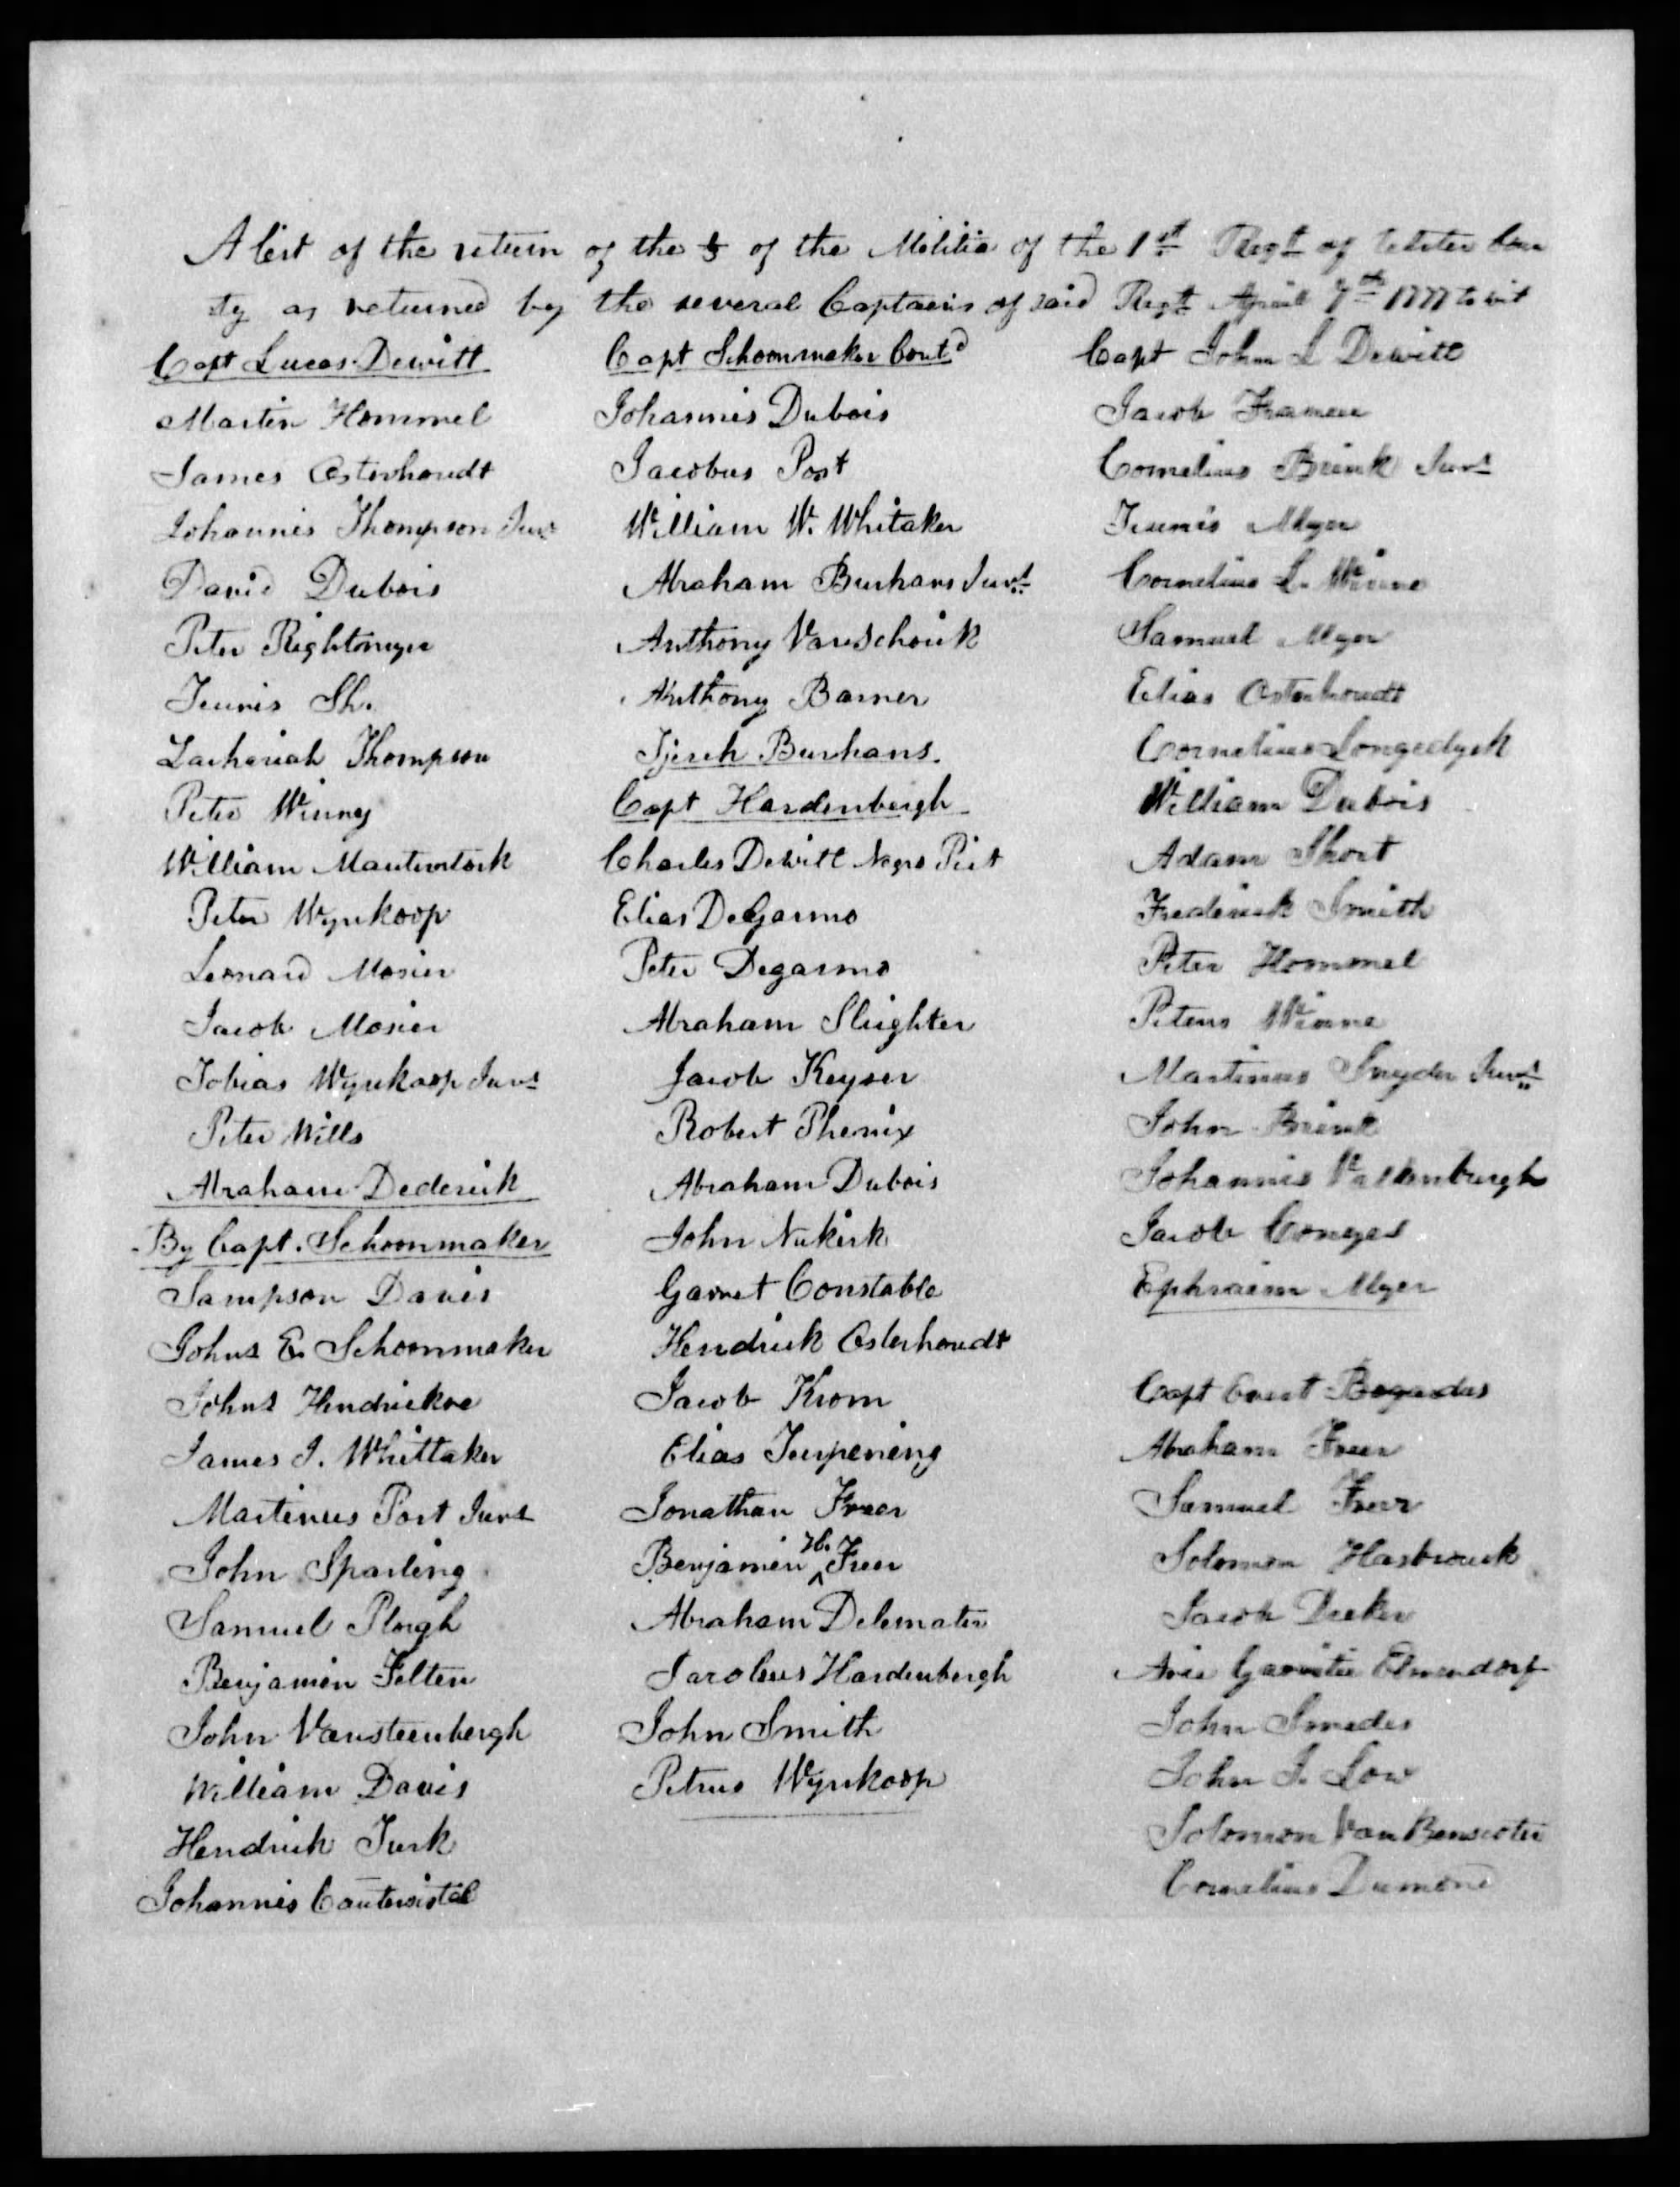 A List of the return of the ⅓ of the Militia of the 1st Regt of Ulster Coun
ty as returned by the several Captains of said Regt April 7th 1777 to wit
Capt Lucas Dewitt
Martin Hommel
James Osterhoudt
Johannis Thompson Junr
David Dubois
Peter Rightmyer
Teunis Sh.
Zachariah Thompson
Peter Winney
William
Peter Wynkoop
Leonard Mosier
Jacob Mosier
Tobias Wynkoop Junr
Peter Wills
Abraham Dederick
By Capt. Schoonmaker
Sampson Davis
Johns E. Schoonmaker
Johns Hendrickse
James J. Whittaker
Martinus Post Junr
John Sparling
Samuel Plogh
Benjamin Felten
John Vansteenbergh
William Davis
Hendrick Turk
Johannis
Capt Schoonmaker Contd
Johannis Dubois
Jacobus Post
William W. Whitaker
Abraham Burhans Junr
Anthony VanSchoick
Anthony Barner
Tjerck Burhans.
Capt Hardenbergh
Charles Dewitt Negro Piet
Elias DeGarmo
Peter Degarmo
Abraham Slighter
Jacob Keyser
Robert Phenix
Abraham Dubois
John Nukirk
Garret Constable
Hendrick Osterhoudt
Jacob Krom
Elias Terpening
Jonathan Freer
Benjamin H. Freer
Abraham Delemater
Jaroleus Hardenbergh
John Smith
Petrus Wynkoop
Capt John L Dewitt
Jacob Franeer
Cornelius Brink Junr
Teunis Myer
Cornelius L. Winne
Samuel Myer
Elias Osterhoudt
Cornelius Longedyck
William Dubois
Adam Short
Frederick Smith
Peter Hommel
Peteus Winne
Martinus Snyder Junr
John Brink
Johannis Valkenburgh
Jacob Conyes
Ephraim Myer
Capt Evert Bogardus
Abraham Freer
Samuel Freer
Solomon Hasbrouck
Jacob Decker
Arie Garritse Elmendorf
John Smedes
John J. Low
Solomon Van Benscoter
Cornelius Dumond